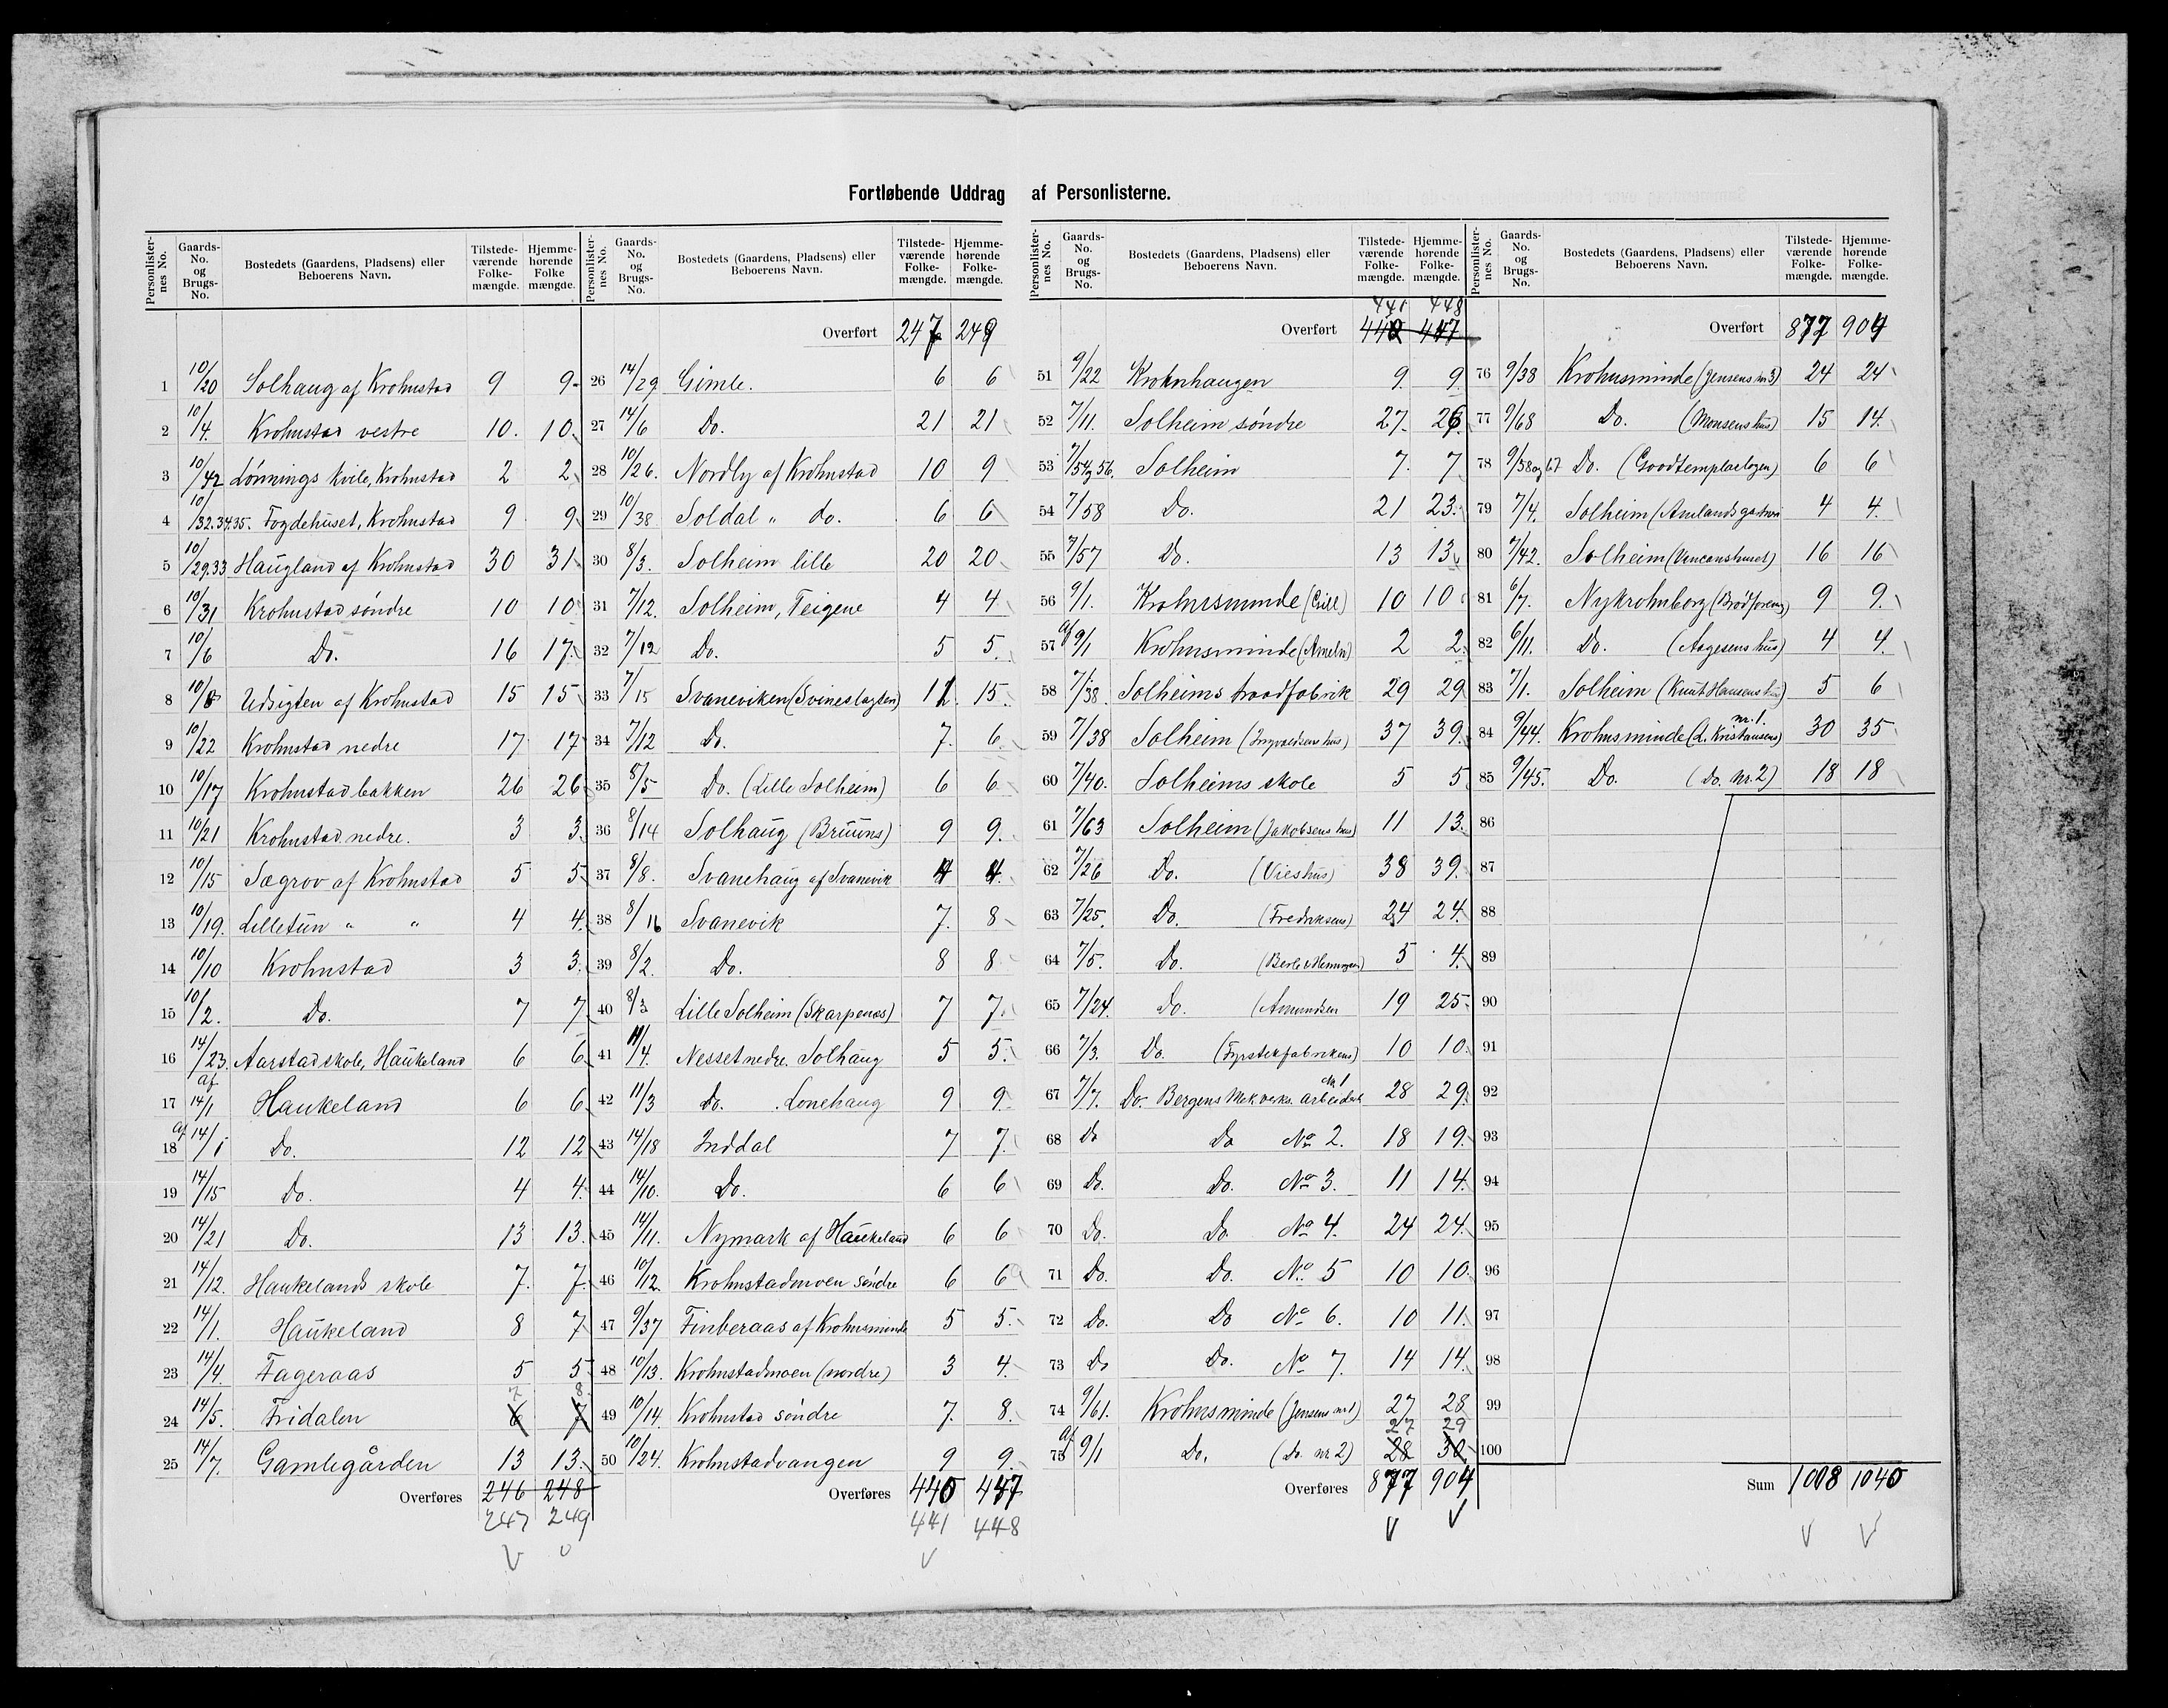 Fortløbende Uddrag af Personlisterne.
Personlister-nes No. Gaards-No. og Brugs-No. Bostedets (Gaardens, Pladsens) eller Beboerens Navn. Tilstede-værende Folke-mængde. Hjemme-hørende Folke mængde.
1 10/20 Solhaug af Krohnstad 9 9
2 10/4. Krohnstad vestre 10. 10.
3 10/42 Lønnings Kvile, Krohnstad 2 2
4 10/32.34.35. Fogdehuset, Krohnstad 9 9
5 10/29.33 Haugland af Krohnstad 30 31
6 10/31 Krohnstad søndre 10 10
7 10/6 Do. 16 17.
8 10/8 Udsigten af Krohnstad 15 15
9 10/22 Krohnstad nedre 17 17
10 10/17 Krohnstadbakken 26 26
11 10/21 Krohnstad nedre. 3 3
12 10/15 Sægrov af Krohnstad 5 5
13 10/19. Lilletun " " 4 4.
14 10/10 Krohnstad 3 3.
15 10/2. Do. 7 7
16 14/23. Aarstad skole, Haukeland 6 6
17 af 14/1 Haukeland 6 6
18 af 14/1 Do. 12 12
19 14/15 Do. 4 4.
20 14/21 Do. 13 13.
21 14/12. Haukelands skole 7. 7.
22 14/1. Haukeland 8 7
23 14/4. Fageraas 5 5
7 8
24 14/5. Fridalen 6 7
25 14/7. Gamlegården 13 13.
Overføres 246 248
247 249
Personlister-nes No. Gaards-No. og Brugs-No. Bostedets (Gaardens, Pladsens) eller Beboerens Navn. Tilstede-værende Folke-mængde. Hjemme-hørende Folke-mængde.
Overført 247 249
26 14/29 Gimle. 6 6
27 14/6 Do. 21 21
28 10/26. Nordly af Krohnstad 10 9
29 10/38 Soldal " do. 6 6
30 8/3. Solheim lille 20 20
31 7/12. Solheim, Teigene 4 4
32 7/12 Do. 5 5.
33 7/15 Svaneviken (Svineslagteri) 12. 15.
34 7/12 Do. 7. 6.
35 8/5 Do. (Lille Solheim) 6 6
36 8/14 Solhaug (Bruuns) 9 9.
37 8/8. Svanehaug af Svanevik 4 4.
38 8/16 Svanevik 7. 8
39 8/2. Do. 8 8
40 8/3 Lille Solheim (Skarpenes) 7 7.
41 11/4. Nesset nedre. Solhaug 5 5.
42 11/3 Do. Lonehaug 9 9.
43 14/18 Inddal 7 7.
44 14/10. Do. 6 6
45 14/11. Nymark af Haukeland 6 6
46 10/12. Krohnstadmoen søndre 6 6
47 9/37 Finberaas af Krohnsminde 5 5.
48 10/13. Krohnstadmoen (nordre) 3 4.
49 10/14. Krohnstad søndre 7. 8.
50 10/24. Krohnstadvangen 9 9.
Overføres 440 447
441 448
Personlister-nes No. Gaards-No. og Brugs-No. Bostedets (Gaardens, Pladsens) eller Beboerens Navn. Tilstede-værende Folke-mængde. Hjemme-hørende Folke-mængde.
441 448
Overført 440 447
51 9/22 Krohnhaugen 9. 9.
52 7/11. Solheim søndre 27. 26.
53 7/54 og 56. Solheim 7. 7
54 7/58 Do. 21 23.
55 7/57 Do. 13 13
56 9/1. Krohnsminde 10 10
57 af 9/1 Krohnsminde (Ameln) 2 2
58 7/38. Solheims traadfabrik 29 29
59 7/38 Solheim (Ingvaldsens hus) 37 39.
60 7/40. Solheims skole 5 5
61 7/63 Solheim (Jakobsens hus) 11 13.
62 7/26 Do. (Vies hus) 38 39.
63 7/25. Do. (Fredriksens) 24 24.
64 7/5. Do. 5 4.
65 7/24. Do. (Amundsen 19 25.
66 7/3. Do. (Fyrstikfabrikens) 10 10.
67 7/7. Do. Bergens Mek. verks. Arbeiderb. No 1 28 29.
68 Do Do No 2. 18 19.
69 Do. Do. No 3. 11 14.
70 Do. Do. No 4. 24 24.
71 Do. Do. No 5 10 10.
72 Do. Do No 6. 10 11.
73 Do Do. No 7. 14 14.
74 9/61. Krohnsminde (Jensens nr 1) 27 28
27 29
75 af 9/1 Do. (Do. nr 2) 28 30
Overføres 877 904
Personlister-nes No. Gaards-No. og Brugs-No. Bostedets (Gaardens, Pladsens) eller Beboerens Navn. Tilstede-værende Folke-mængde. Hjemme-hørende Folke-mængde.
Overført 877 904
76 9/38 Krohnsminde (Jensens nr 3) 24 24
77 9/68 Do. (Monsens hus) 15 14.
78 9/38 og 67 Do. (Goodtemplarlogen) 6 6
79 7/4. Solheim 4 4.
80 7/42. Solheim 16 16
81 6/7. Nykrohnborg (Brødforening) 9 9.
82 6/11. Do. (Aagesens hus) 4 4.
83 7/1. Solheim (Knut Hansens hus) 5 6
84 9/44. Krohnsminde (L. Kristiansens) nr. 1. 30 35
85 9/45. Do. (Do. nr. 2) 18 18
86
87
88
89
90
91
92
93
94
95
96
97
98
99
100
Sum 1008 1040